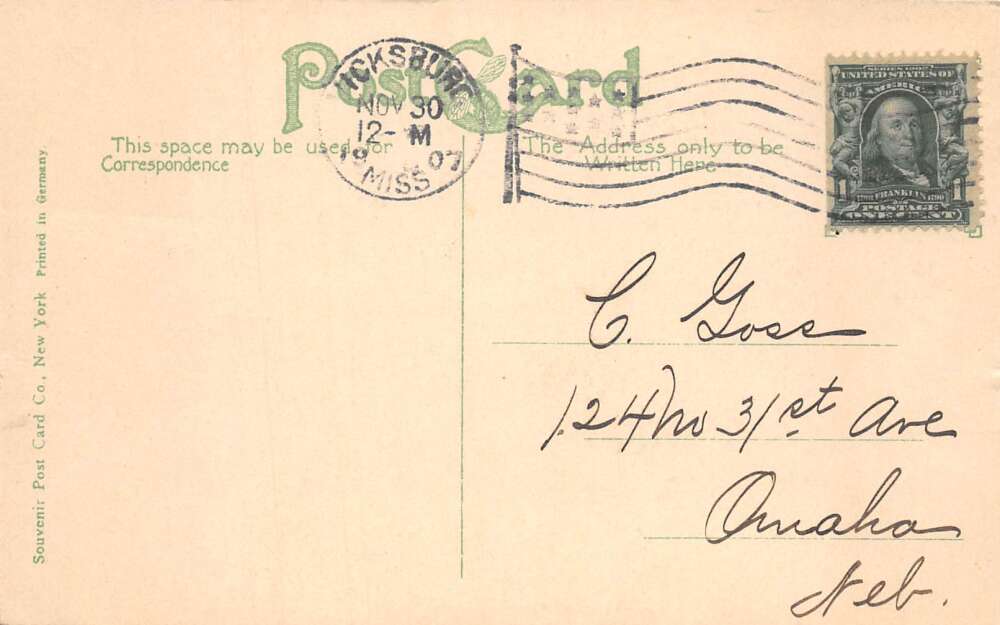 Post Card
VICKSBURG
NOV 30
12- M
1907
MISS
This space may be used for
Correspondence
The Address only to be
Written Here
SERIES 1902
UNITED STATES OF
AMERICA
1 1
FRANKLIN
POSTAGE
ONE CENT
C. Goss
124 No 31st Ave
Omaha
Neb.
Souvenir Post Card Co., New York Printed in Germany.